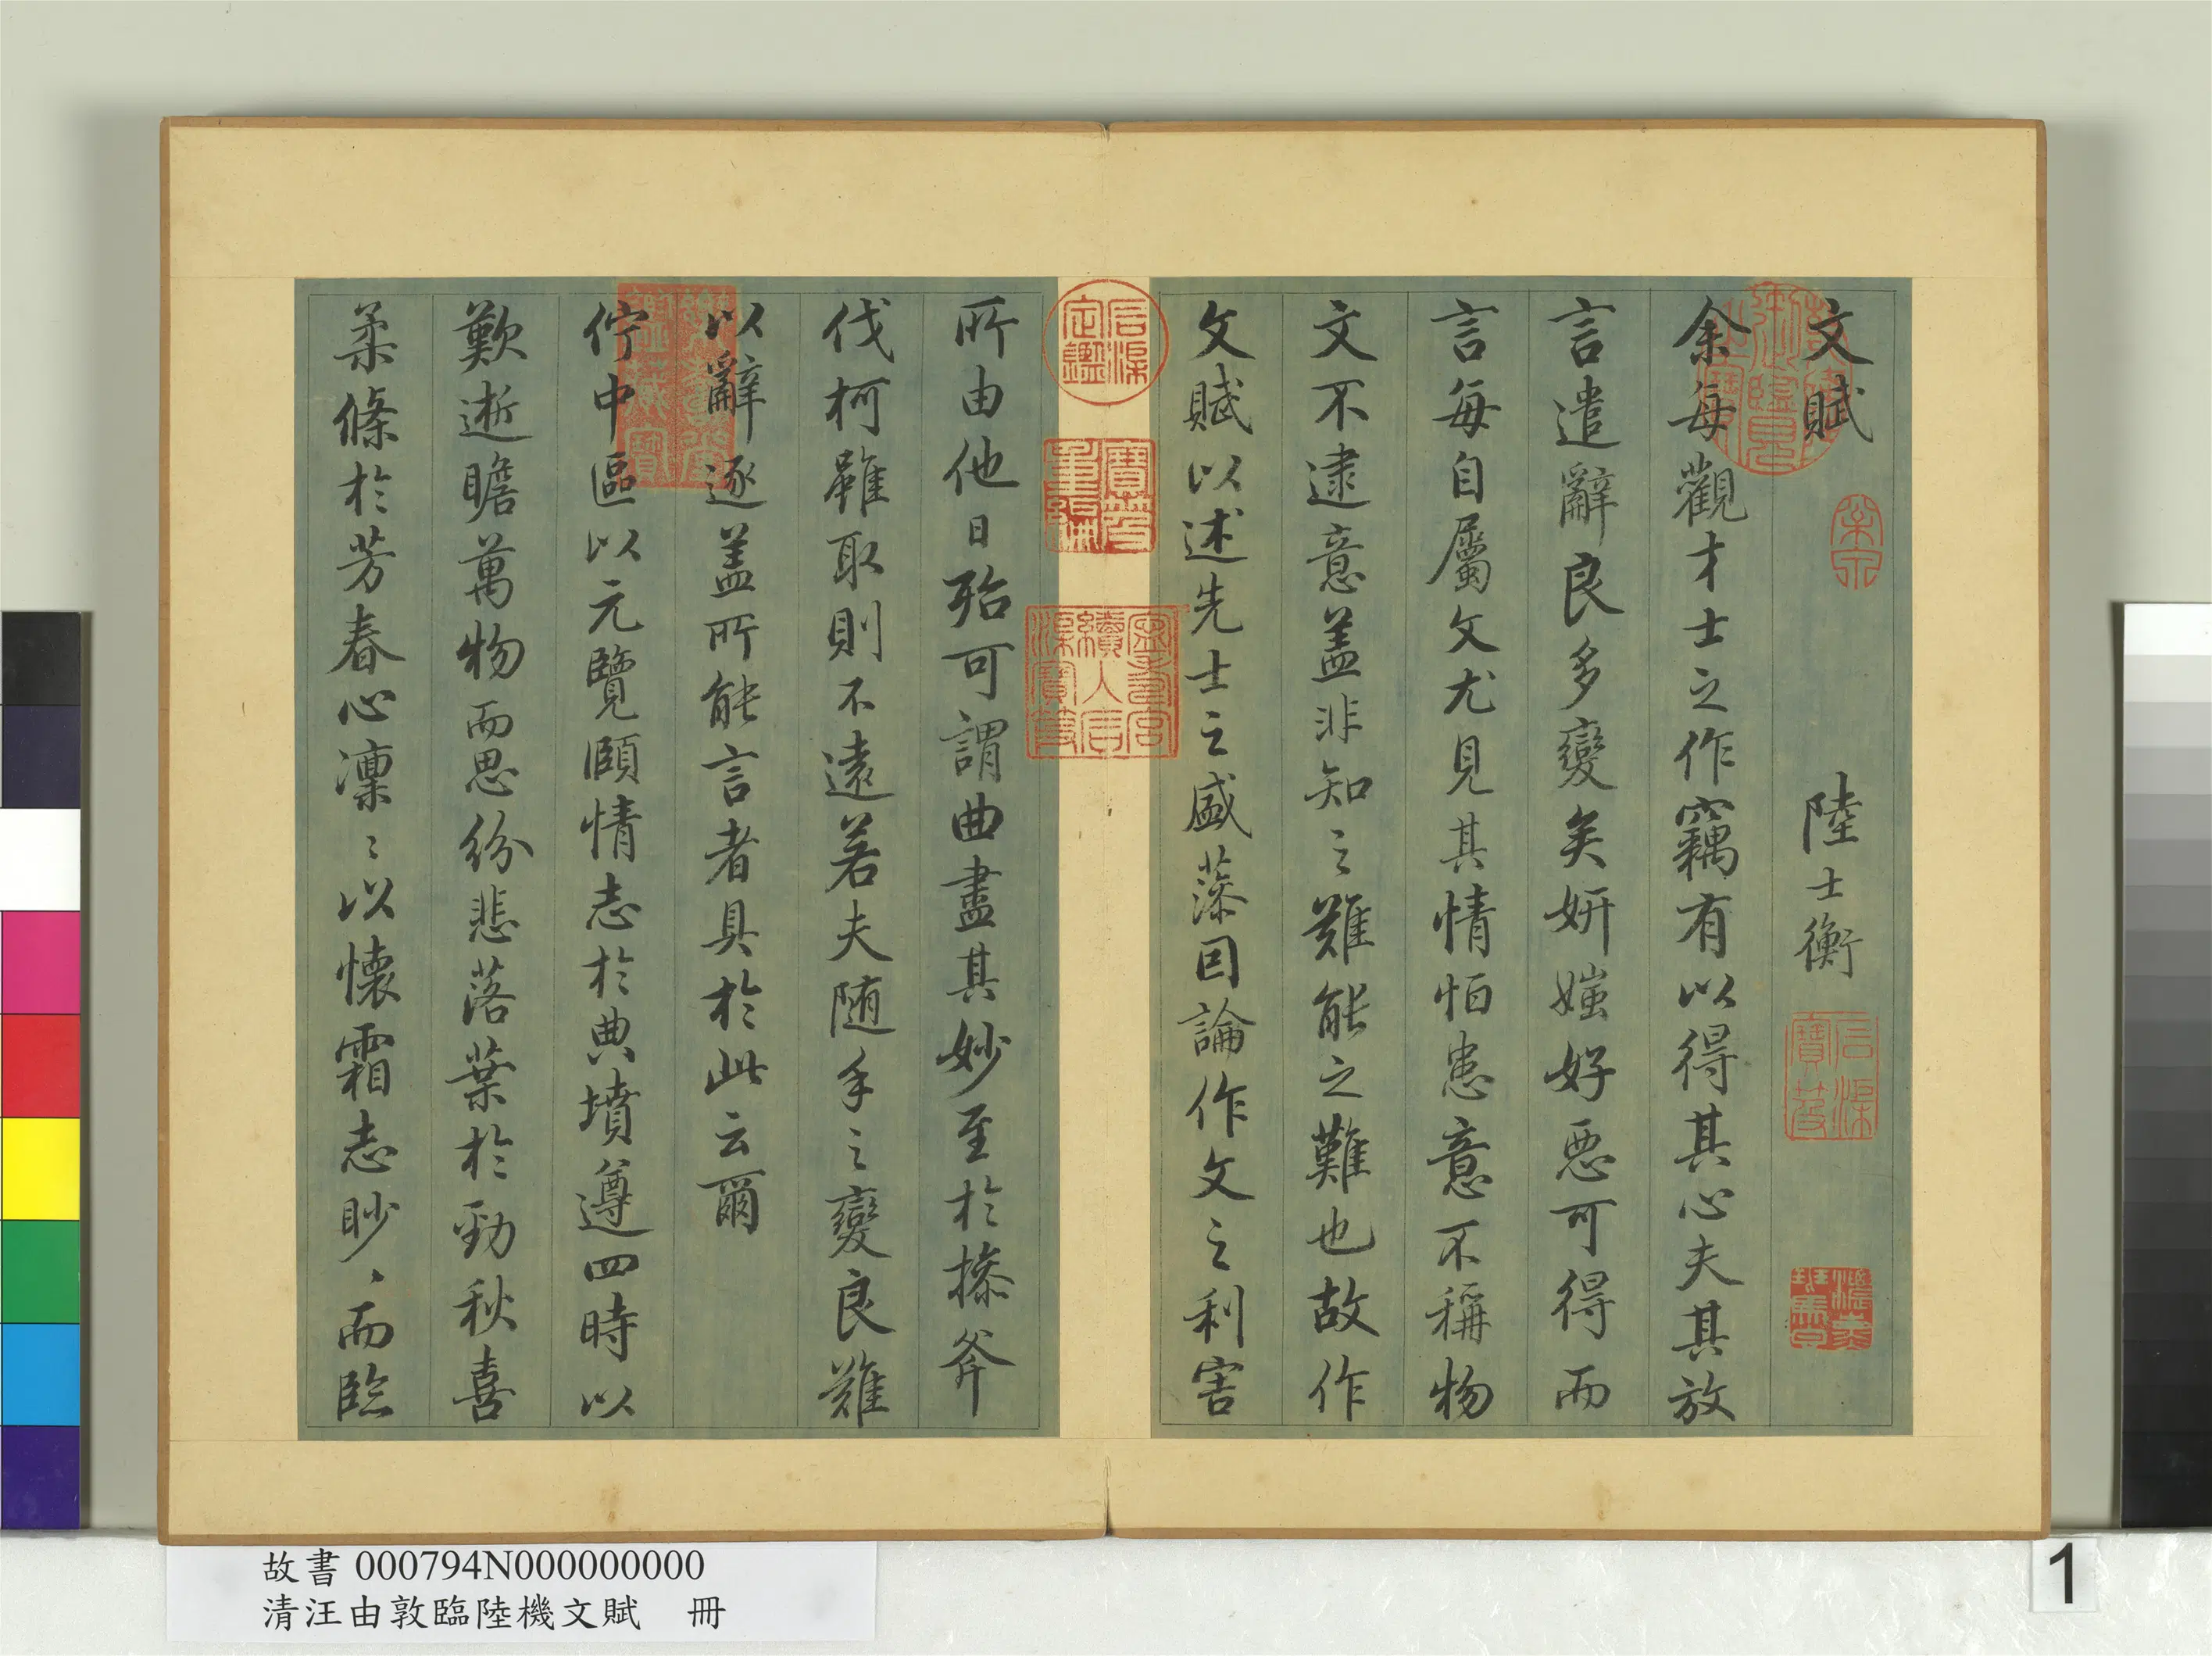 文賦 陸士衡
余每觀才士之作竊有以得其心夫其放
言遣辭良多變矣妍媸好惡可得而
言每自屬文尤見其情怕患意不稱物
文不逮意盖非知之難能之難也故作
文賦以述先士之盛藻因論作文之利害
所由他日殆可謂曲盡其妙至於㨿斧
伐柯雖取則不遠若夫随手之變良難
以辭逐盖所能言者具於此云爾
佇中區以元覽頤情志於典墳遵四時以
歎逝瞻萬物而思紛悲落葉於勁秋喜
柔條於芳春心凜〻以懷霜志眇〻而臨
石渠定鑑
寶笈重編
石渠寶笈
故書 000794N000000000
清汪由敦臨陸機文賦 冊
1